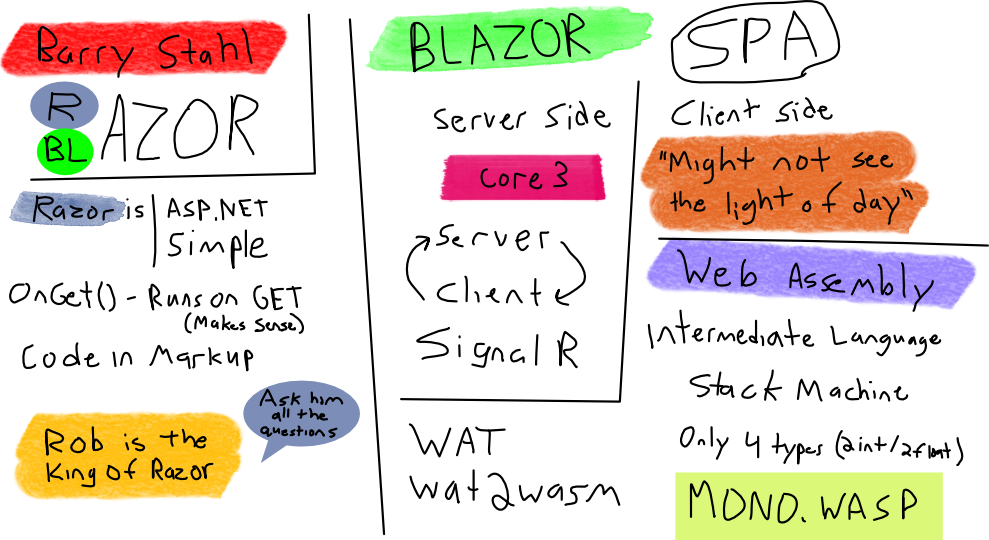 Barry Stahl
R
BL
AZOR
Razor is
ASP.NET
Simple
OnGet() - Runs on GET
(Makes Sense)
Code in Markup
Ask him
all the
questions
Rob is the
King of Razor
BLAZOR
Server Side
Core 3
Server
Client
Signal R
WAT
wat2wasm
SPA
Client Side
"Might not see
the light of day"
Web Assembly
Intermediate Language
Stack Machine
Only 4 types (2int/2float)
MONO.WASP